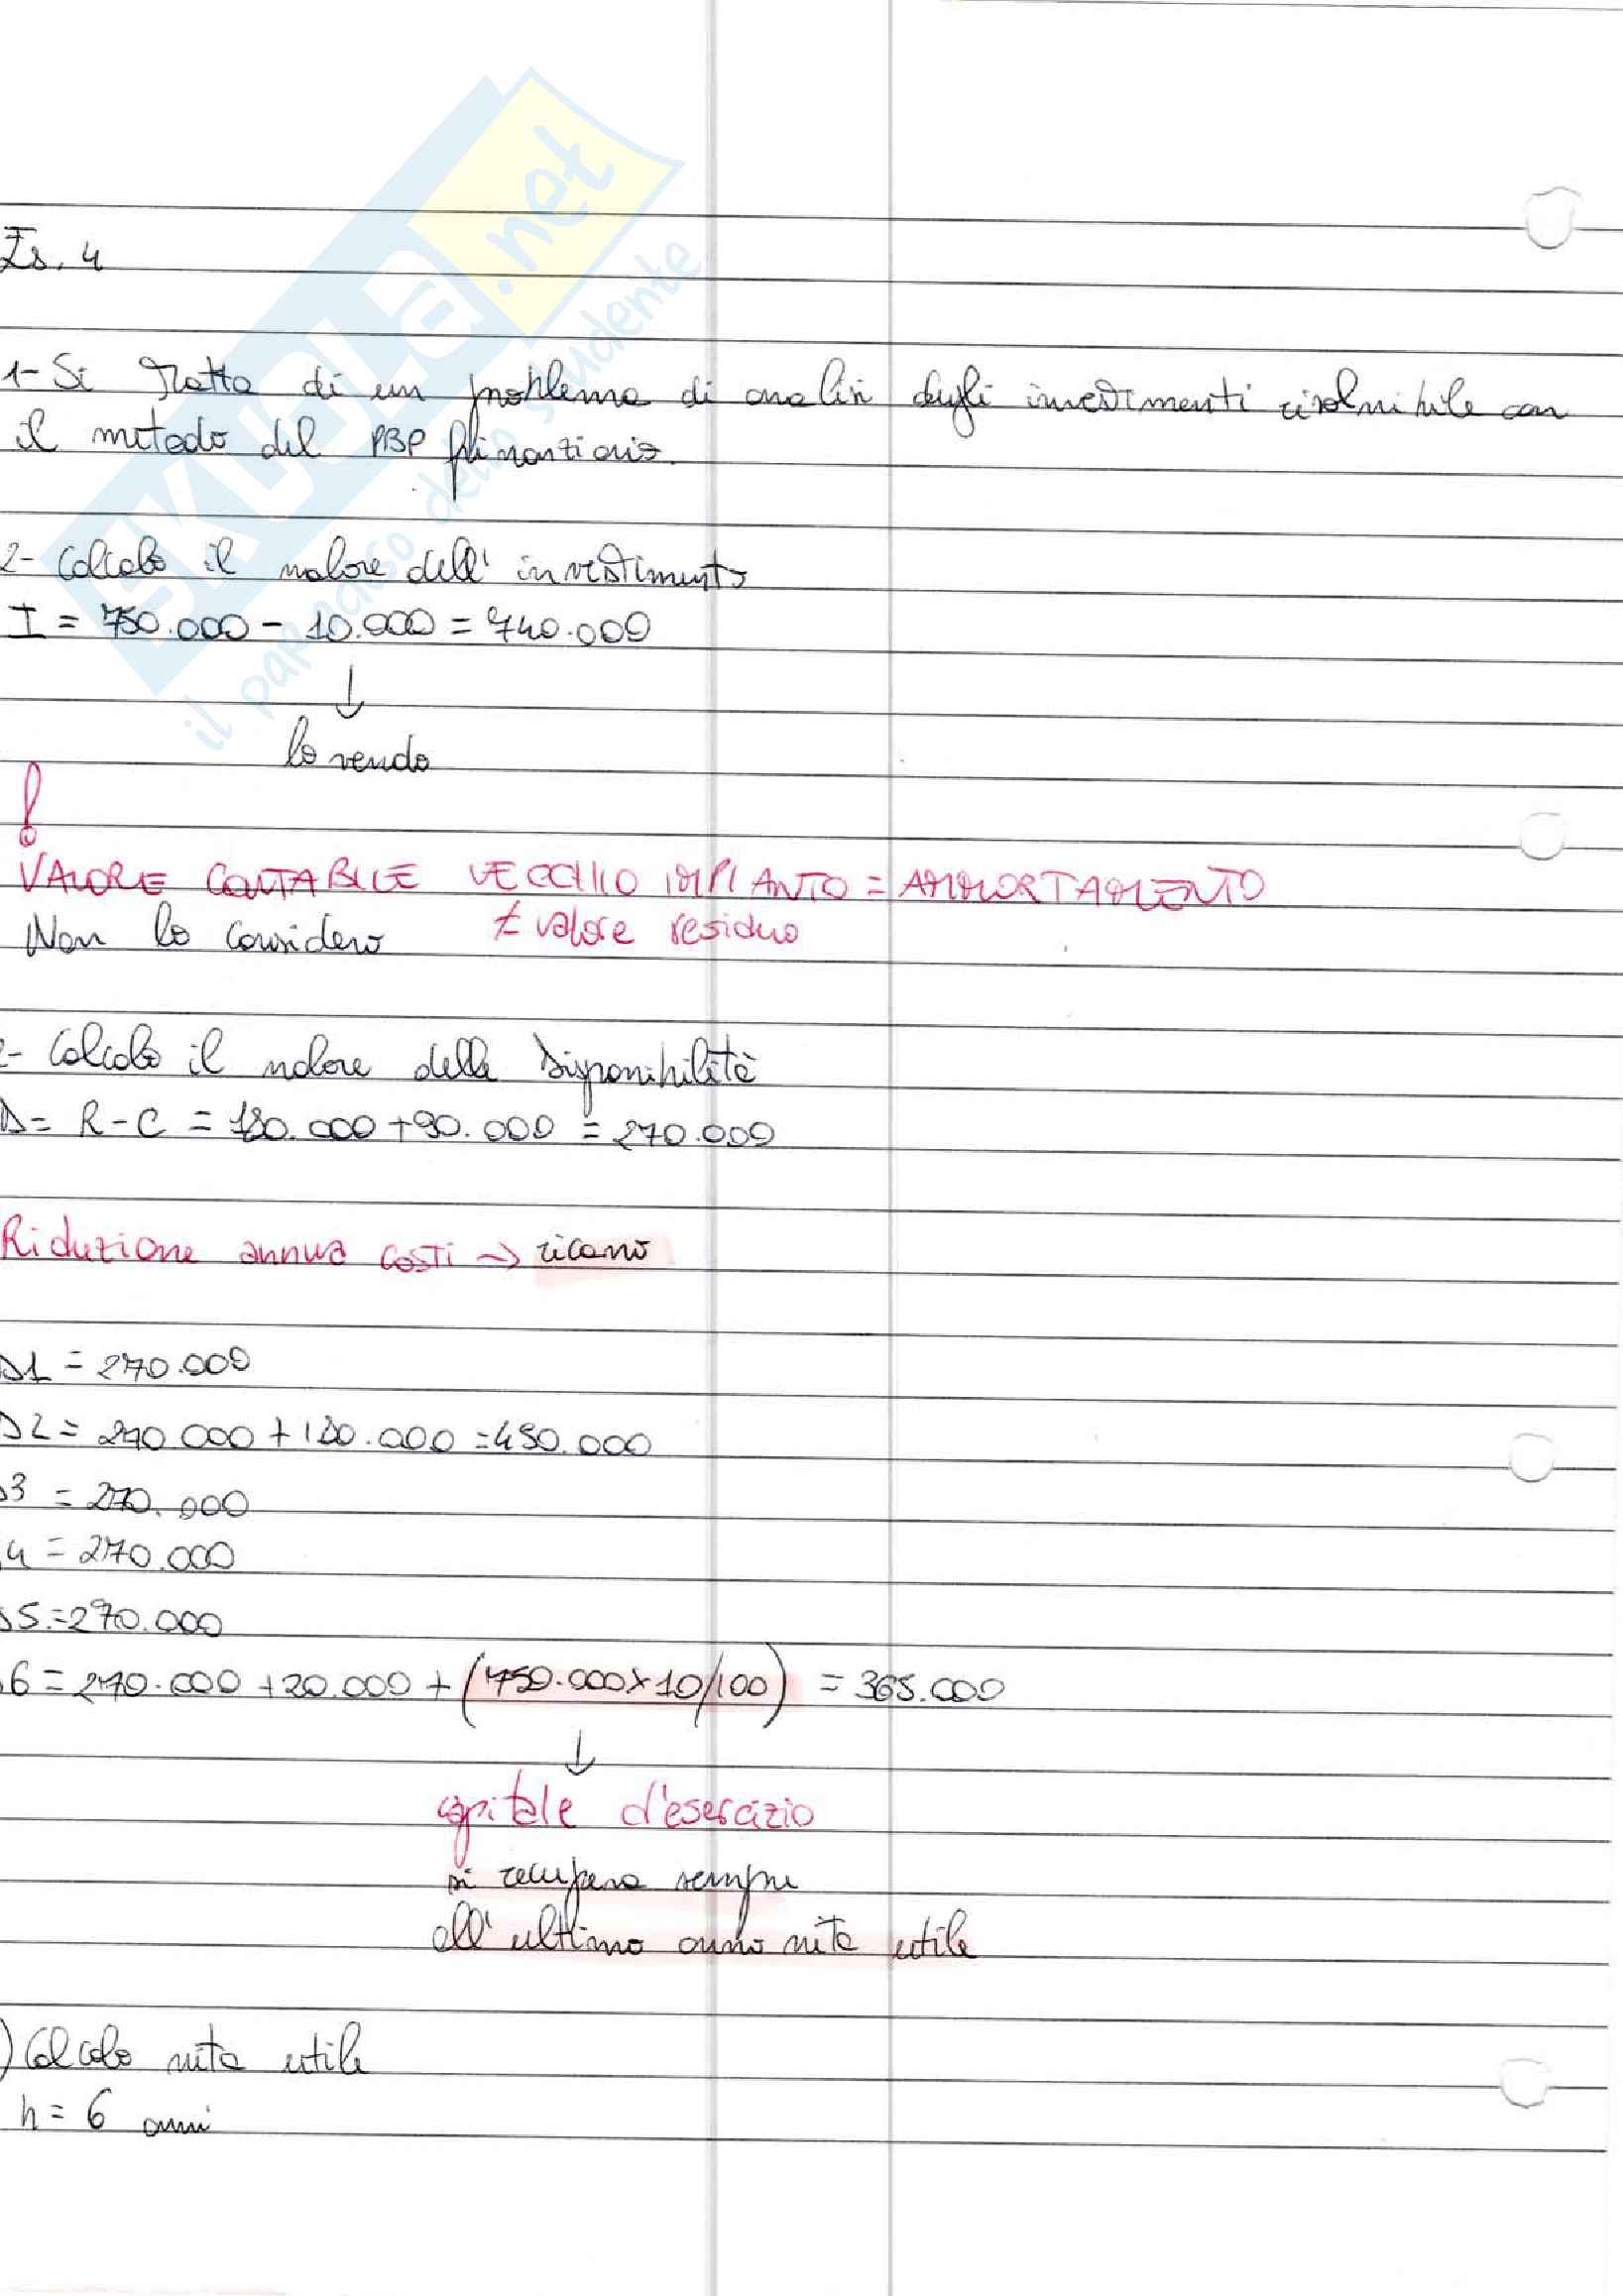 SKUOLA.net
il paradiso dello studente
Es. 4
1- Si tratta di un problema di analisi degli investimenti risolvibile con
il metodo del PBP finanziario.
2- Calcolo il valore dell' investimento
I = 750.000 - 10.000 = 740.000
↓
lo vendo
!
VALORE CONTABILE VECCHIO IMPIANTO = AMMORTAMENTO
Non lo considero ≠ valore residuo
2- Calcolo il valore della Disponibilità
D= R-C = 180.000+90.000 = 270.000
Riduzione annua costi → ricavo
D1 = 270.000
D2 = 270.000 + 180.000 = 450.000
D3 = 270.000
4 = 270.000
D5 = 270.000
6 = 270.000 + 20.000 + (750.000 x 10/100) = 365.000
↓
capitale d'esercizio
si recupera sempre
all'ultimo anno vita utile
) Calcolo vita utile
n= 6 anni